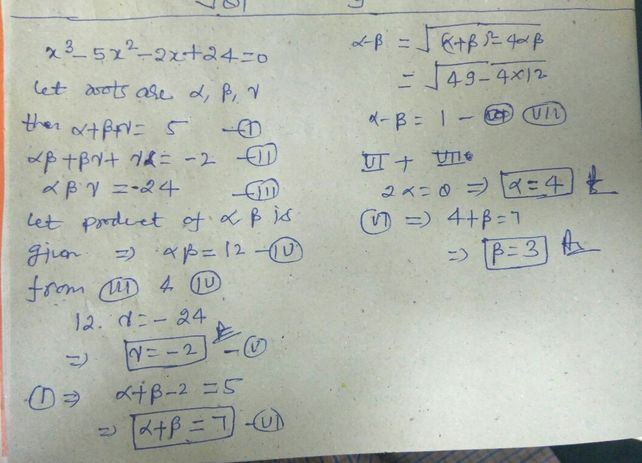 x³ - 5x² - 2x + 24 = 0
Let roots are α, β, γ
then α+β+γ = 5 - (I)
αβ + βγ + γα = -2 - (II)
αβγ = -24 - (III)
Let product of αβ is
given ⇒ αβ = 12 - (IV)
from (III) & (IV)
12. γ = -24
⇒ γ = -2 - (V)
(I) ⇒ α+β-2 = 5
⇒ α+β = 7 - (VI)
α-β = √(α+β)² - 4αβ
= √49 - 4×12
α-β = 1 - (VII)
VI + VII
2α = 8 ⇒ α = 4
(VI) ⇒ 4+β = 7
⇒ β = 3 Ans